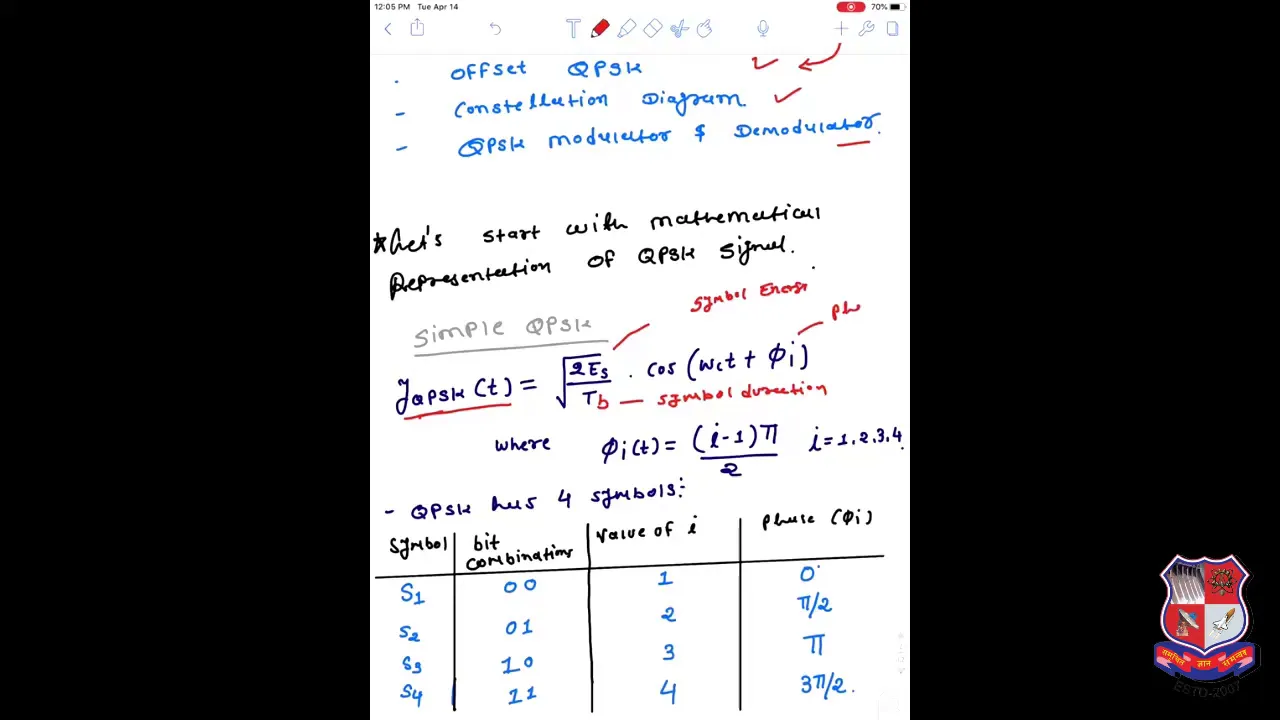 12:05 PM Tue Apr 14
70%
- OFFset QPSK
- Constellation Diagram
- QPSK modulator & Demodulator.
* Let's start with mathematical
Representation of QPSK Signal.
Symbol Energ
Simple QPSK
Ph
yQPSK(t) = √(2Es/Tb) . cos (wct + ϕi)
symbol duration
where ϕi(t) = (i-1)π/2 i=1,2,3,4.
- QPSK has 4 symbols:
Symbol bit combinations Value of i phase (ϕi)
S1 00 1 0°
S2 01 2 π/2
S3 10 3 π
S4 11 4 3π/2.
ESTD-2007